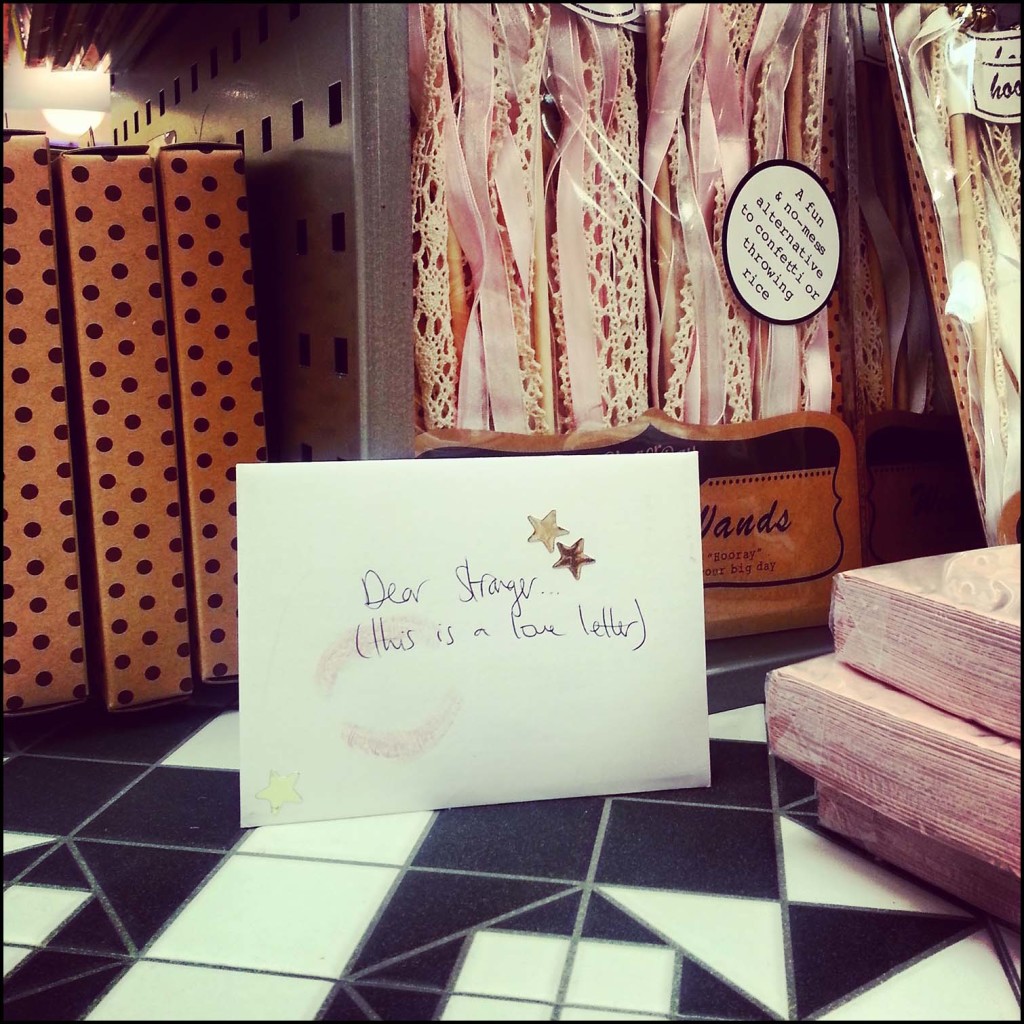 A fun
& no-mess
alternative
to confetti or
throwing
rice
hoo
Wands
"Hooray"
our big day
Dear Stranger...
(this is a love letter)